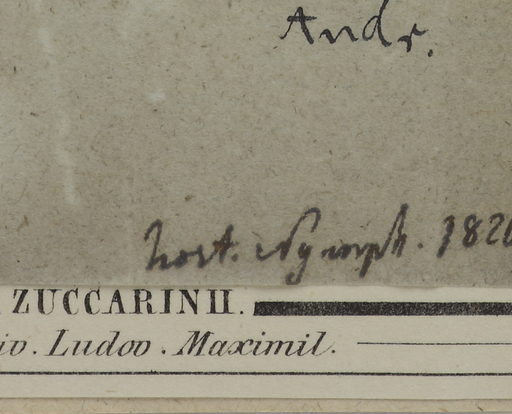 Andr.
hort. Nymph. 1820
ZUCCARINII.
iv. Ludov. Maximil.